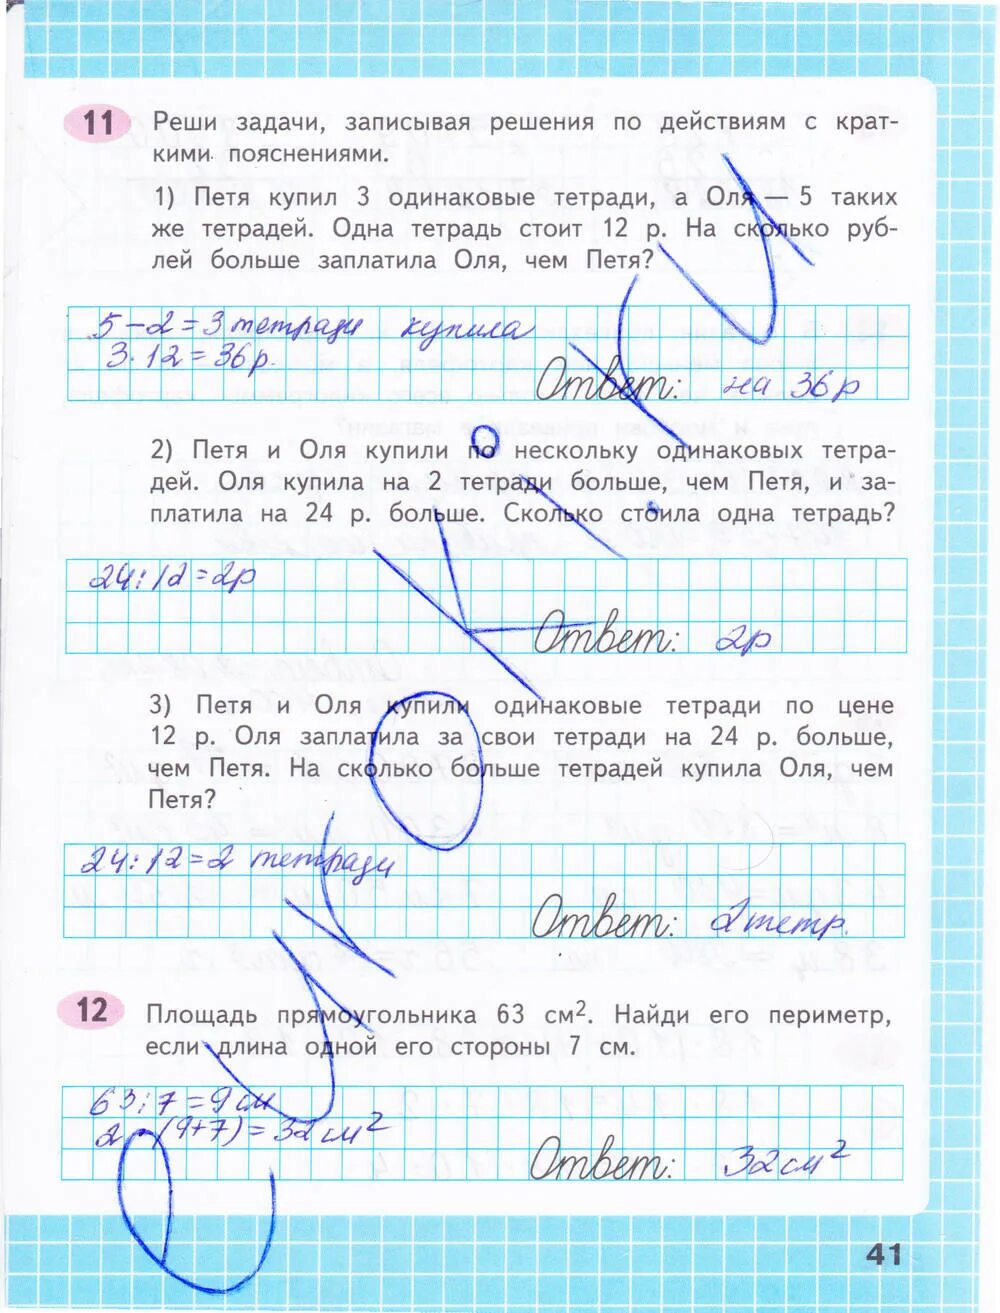 11 Реши задачи, записывая решения по действиям с крат-
кими пояснениями.
1) Петя купил 3 одинаковые тетради, а Оля — 5 таких
же тетрадей. Одна тетрадь стоит 12 р. На сколько руб-
лей больше заплатила Оля, чем Петя?
5-2=3 тетради купила
3·12=36р.
Ответ: на 36р
2) Петя и Оля купили по нескольку одинаковых тетра-
дей. Оля купила на 2 тетради больше, чем Петя, и за-
платила на 24 р. больше. Сколько стоила одна тетрадь?
24:12=2р
Ответ: 2р
3) Петя и Оля купили одинаковые тетради по цене
12 р. Оля заплатила за свои тетради на 24 р. больше,
чем Петя. На сколько больше тетрадей купила Оля, чем
Петя?
24:12=2 тетради
Ответ: 2 тетр.
12 Площадь прямоугольника 63 см². Найди его периметр,
если длина одной его стороны 7 см.
63:7=9см
2·(9+7)=32см²
Ответ: 32см²
41